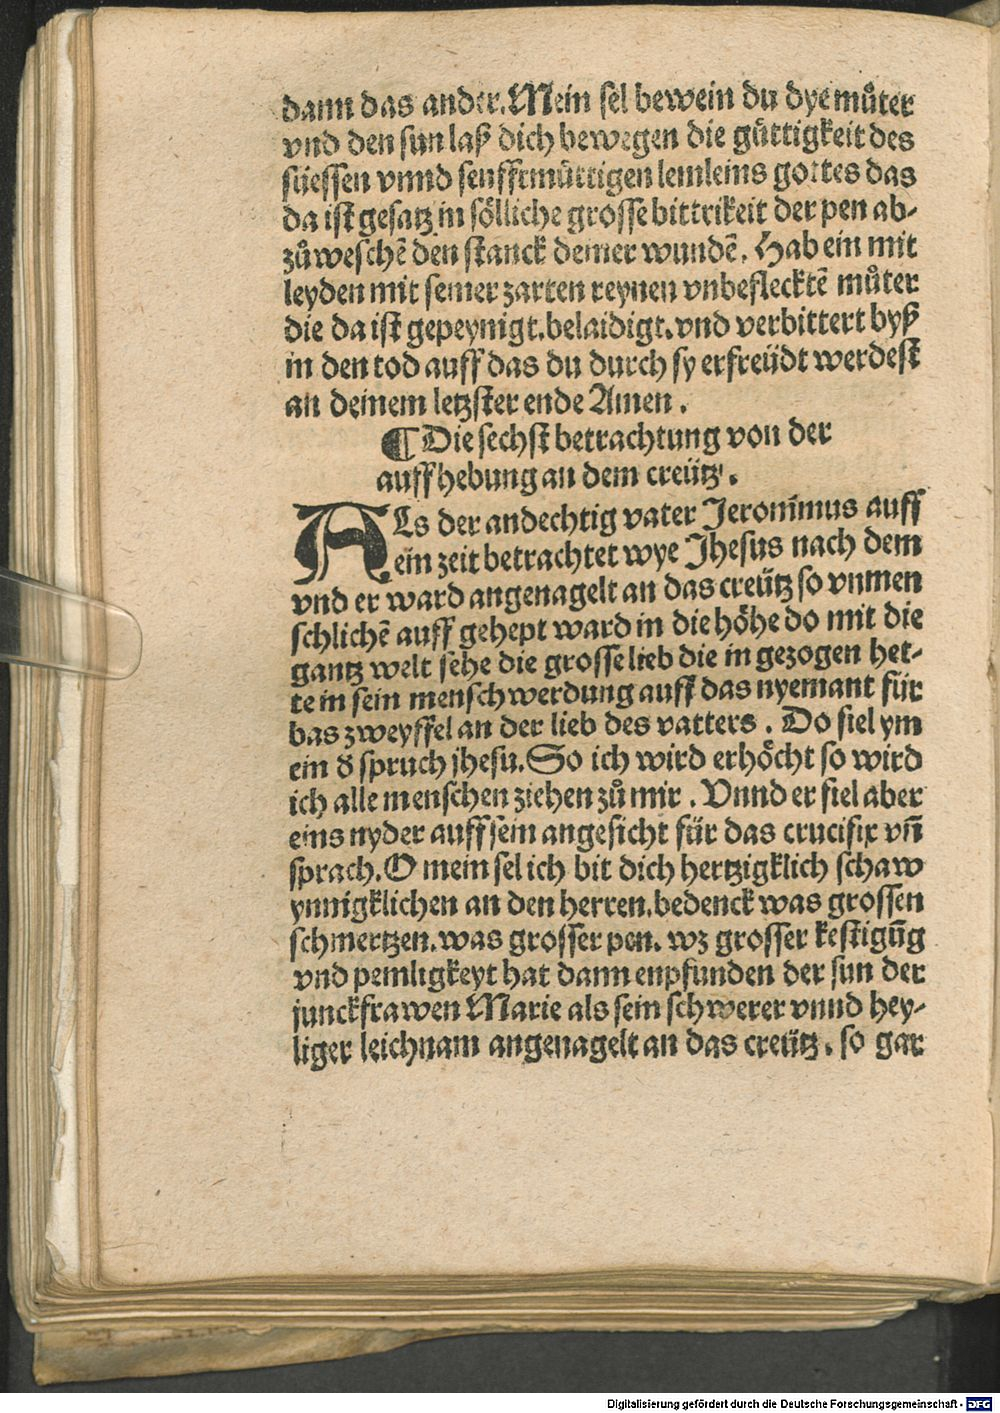 dann das ander. Mein sel bewein du dye můter
vnd den sun laß dich bewegen die gůttigkeit des
süessen vnnd senfftmůttigen lemleins gottes das
da ist gesatz in sölliche grosse bittrikeit der pen ab-
zůweschē den stanck deiner wundē. Hab ein mit
leyden mit seiner zarten reynen vnbefleecktē můter
die da ist gepeynigt. belaidigt. vnd verbittert byß
in den tod auff das du durch sy erfreüdt werdest
an deinem letzster ende Amen.
¶ Die sechst betrachtung von der
auffhebung an dem creütz.
ALs der andechtig vater Jeronimus auff
ein zeit betrachtet wye Jhesus nach dem
vnd er ward angenagelt an das creütz so vnmen
schlichē auff gehept ward in die höhe do mit die
gantz welt sehe die grosse lieb die in gezogen het-
te in sein menschwerdung auff das nyemant für
bas zweyffel an der lieb des vatters. Do fiel ym
ein d̕ spruch jhesu. So ich wird erhöcht so wird
ich alle menschen ziehen zů mir. Vnnd er fiel aber
eins nyder auff sein angesicht für das crucifix vn̄
sprach. O mein sel ich bit dich hertzigklich schaw
ynnigklichen an den herren. bedenck was grossen
schmertzen. was grosser pen. wz grosser kestigūg
vnd peinligkeyt hat dann enpfunden der sun der
junckfrawen Marie als sein schwerer vnnd hey-
liger leichnam angenagelt an das creütz. so gar
Digitalisierung gefördert durch die Deutsche Forschungsgemeinschaft - DFG